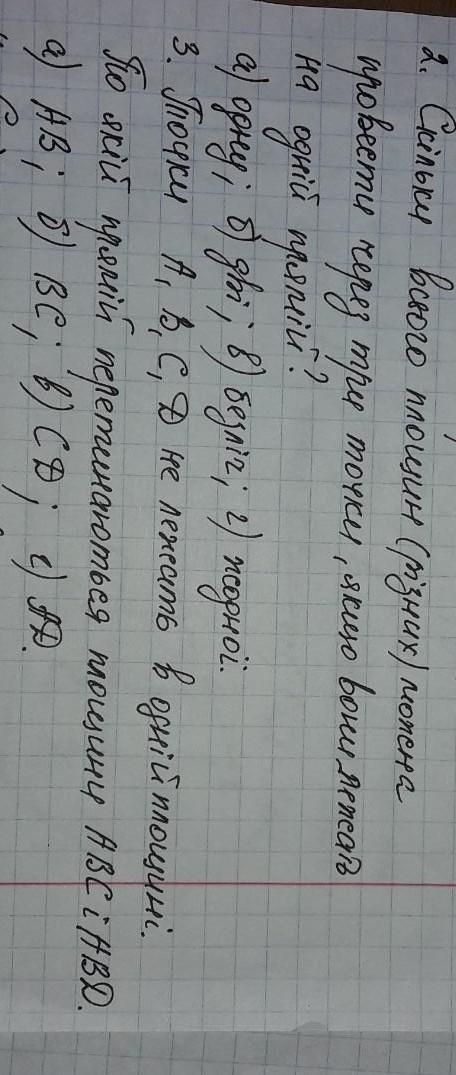 2. Скільки всього площин (різних) можна
провести через три точки, якщо вони лежать
на одній прямій?
а) одну; б) дві; в) безліч; г) жодної.
3. Точки А, В, С, D не лежать в одній площині.
По якій прямій перетинаються площини АВС і АВD.
а) АВ; б) ВС; в) СD; г) АD.